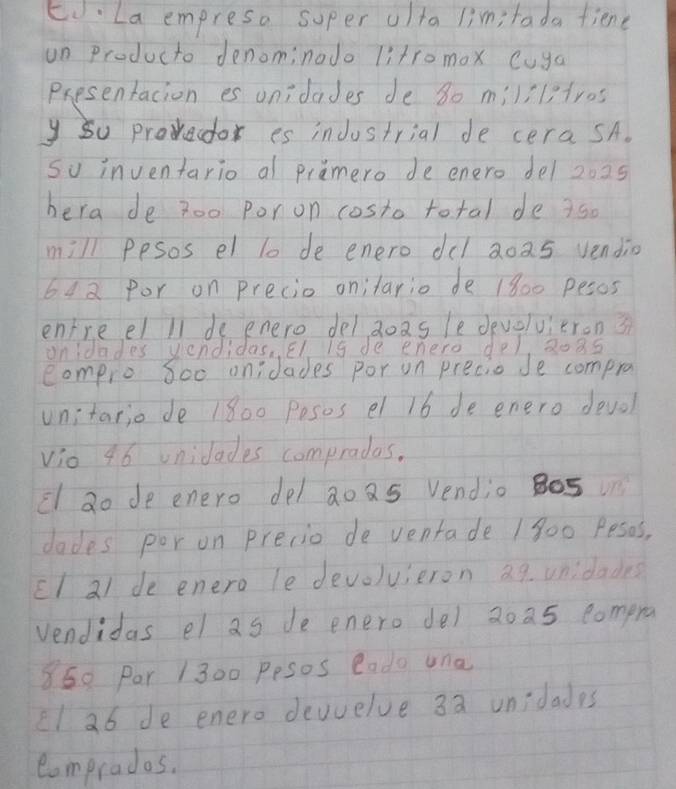 EJ. La empresa super ulta limitada tiene
un producto denominado litromax cuya
presentacion es unidades de 80 mililitros
y su proveedor es industrial de cera SA.
su inventario al primero de enero del 2025
hera de 700 por on costo total de 750
mill pesos el 10 de enero del 2025 vendio
642 por on precio onitario de 1800 pesos
entre el 11 de enero del 2025 le devolvieron
onidades vendidas, El 15 de enero del 2025
compro 800 onidades por un precio de compra
unitario de 1800 pesos el 16 de enero devol
vio 46 unidades compradas.
El 20 de enero del 2025 vendio 805 uni
dades por un precio de venta de 1800 pesos.
El 21 de enero le devolvieron 29. unidades
vendidas el 25 de enero del 2025 compra
850 por 1300 pesos cada una
El 26 de enero devuelve 32 unidades
comprados.